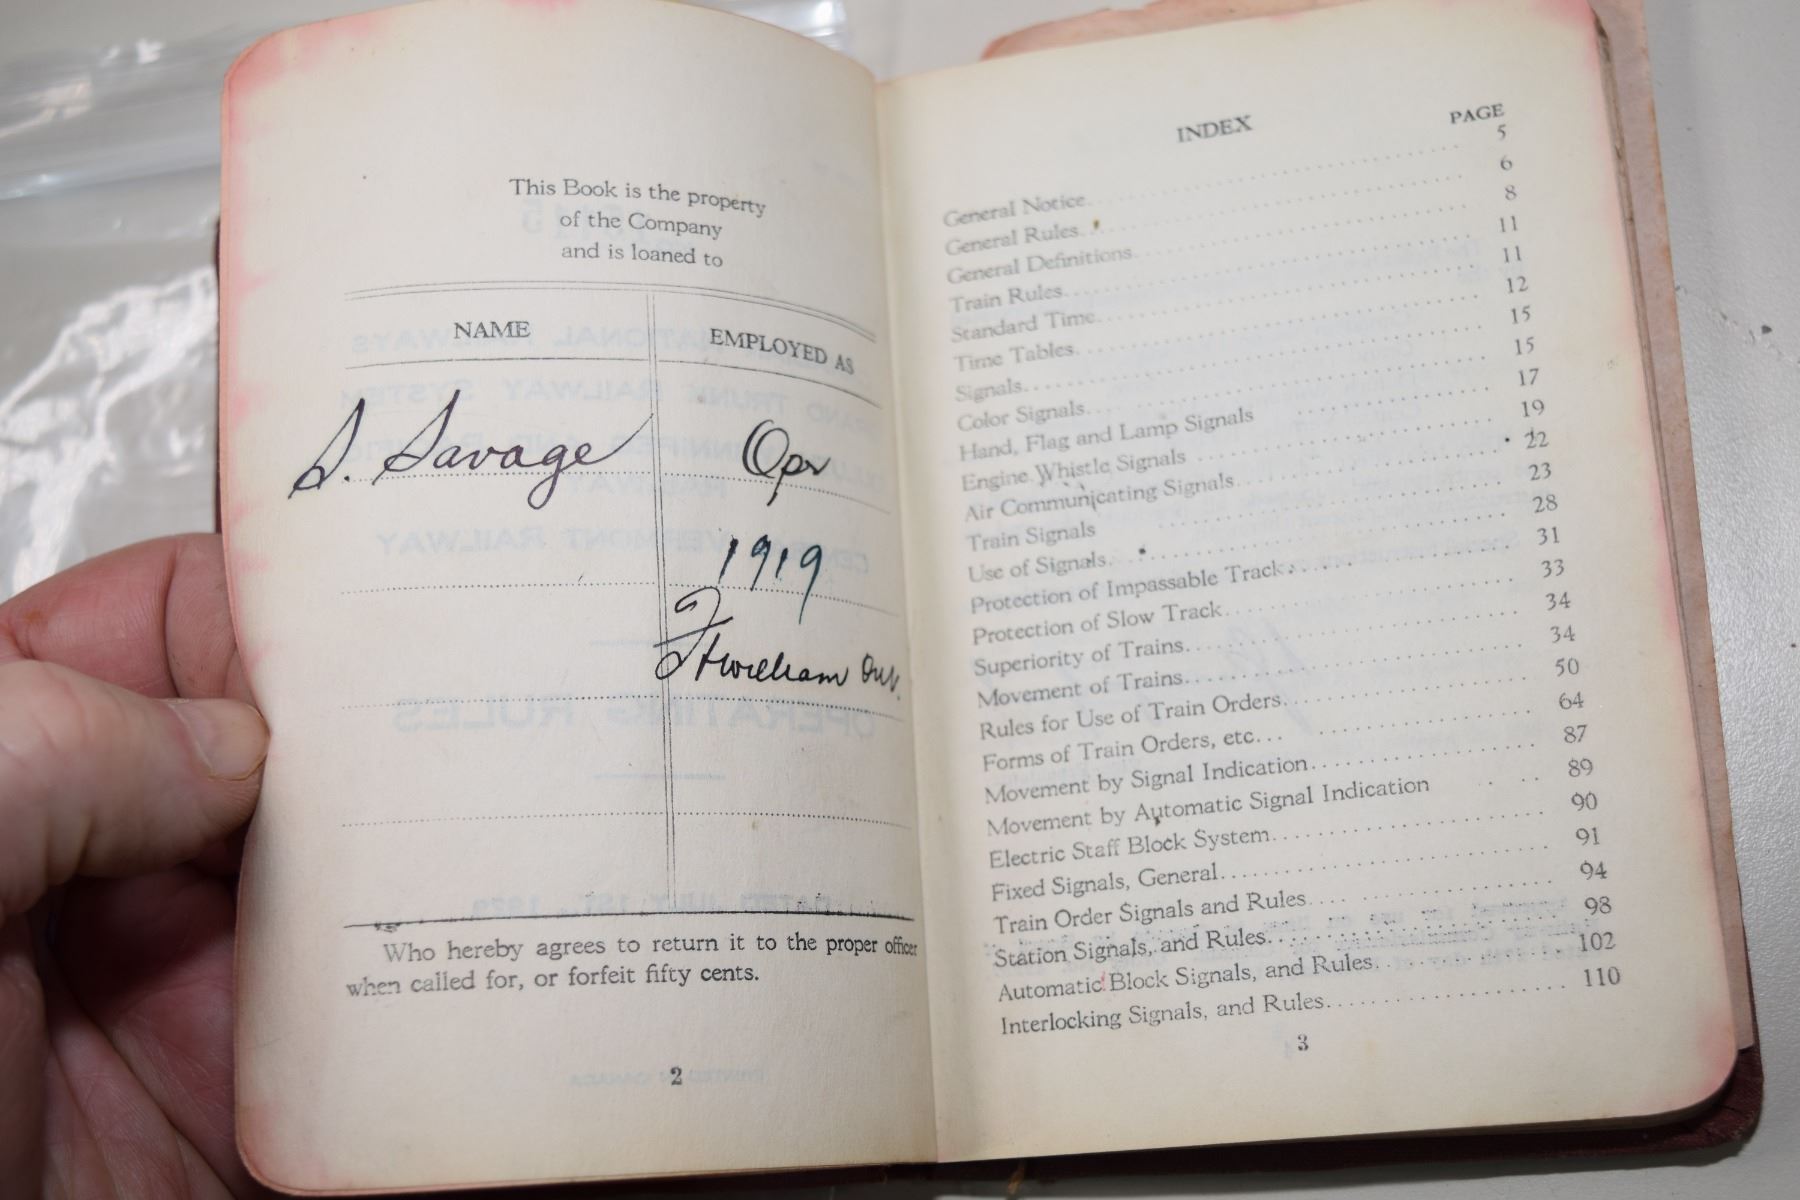 This Book is the property
of the Company
and is loaned to
NAME EMPLOYED AS
S. Savage Opr
1919
Ftwilliam Ont.
Who hereby agrees to return it to the proper officer
when called for, or forfeit fifty cents.
2
INDEX
PAGE
General Notice 5
General Rules 6
General Definitions 8
Train Rules 11
Standard Time 11
Time Tables 12
Signals 15
Color Signals 15
Hand, Flag and Lamp Signals 17
Engine Whistle Signals 19
Air Communicating Signals 22
Train Signals 23
Use of Signals 28
Protection of Impassable Track 31
Protection of Slow Track 33
Superiority of Trains 34
Movement of Trains 34
Rules for Use of Train Orders 50
Forms of Train Orders, etc 64
Movement by Signal Indication 87
Movement by Automatic Signal Indication 89
Electric Staff Block System 90
Fixed Signals, General 91
Train Order Signals and Rules 94
Station Signals, and Rules 98
Automatic Block Signals, and Rules 102
Interlocking Signals, and Rules 110
3